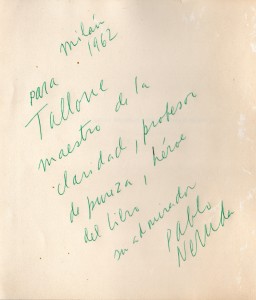 milán
1962
para
Tallone
maestro de la
claridad, profesor
de pureza, héroe
del libro,
su admirador
Pablo
Neruda